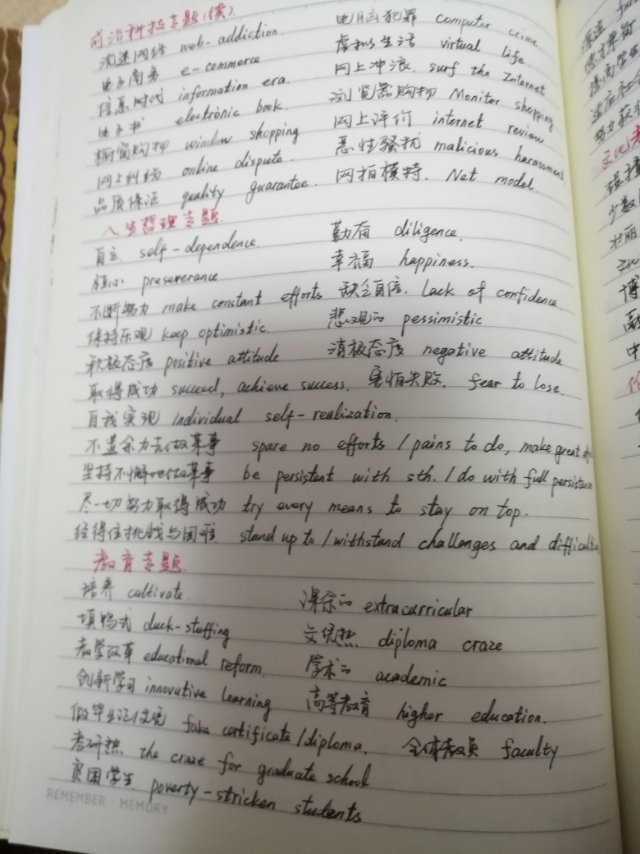 政治科技专题(续)
沉迷网络 web-addiction. 电脑犯罪 computer crime
电子商务 e-commerce 虚拟生活 virtual life
信息时代 information era. 网上冲浪. surf the Internet
电子书 electronic book. 浏览器购物 Monitor shopping
橱窗购物 window shopping 网上评价 internet review
网上纠纷 online dispute. 恶性骚扰 malicious harassment
品质保证 quality guarantee. 网拍模特. Net model.
人生哲理专题.
自立 self-dependence 勤奋 diligence.
恒心 preseverance 幸福 happiness.
不断努力 make constant efforts 缺乏自信. lack of confidence.
保持乐观 keep optimistic 悲观的 pessimistic
积极态度 positive attitude 消极态度 negative attitude
取得成功 succeed, achieve success. 害怕失败. fear to lose.
自我实现 individual self-realization.
不遗余力去做某事 spare no efforts / pains to do, make great
坚持不懈地做某事 be persistent with sth. / do with full persistence
尽一切努力取得成功 try every means to stay on top.
经得住挑战与困难 stand up to / withstand challenges and
教育专题.
培养 cultivate 课余的 extracurricular
填鸭式 duck-stuffing 文凭热 diploma craze
教学改革 educational reform. 学术的 academic
创新学习 innovative learning 高等教育 higher education.
假毕业证/文凭 fake certificate/diploma. 全体教员 faculty
考研热 the craze for graduate school
贫困学生 poverty-stricken students
REMEMBER · MEMORY